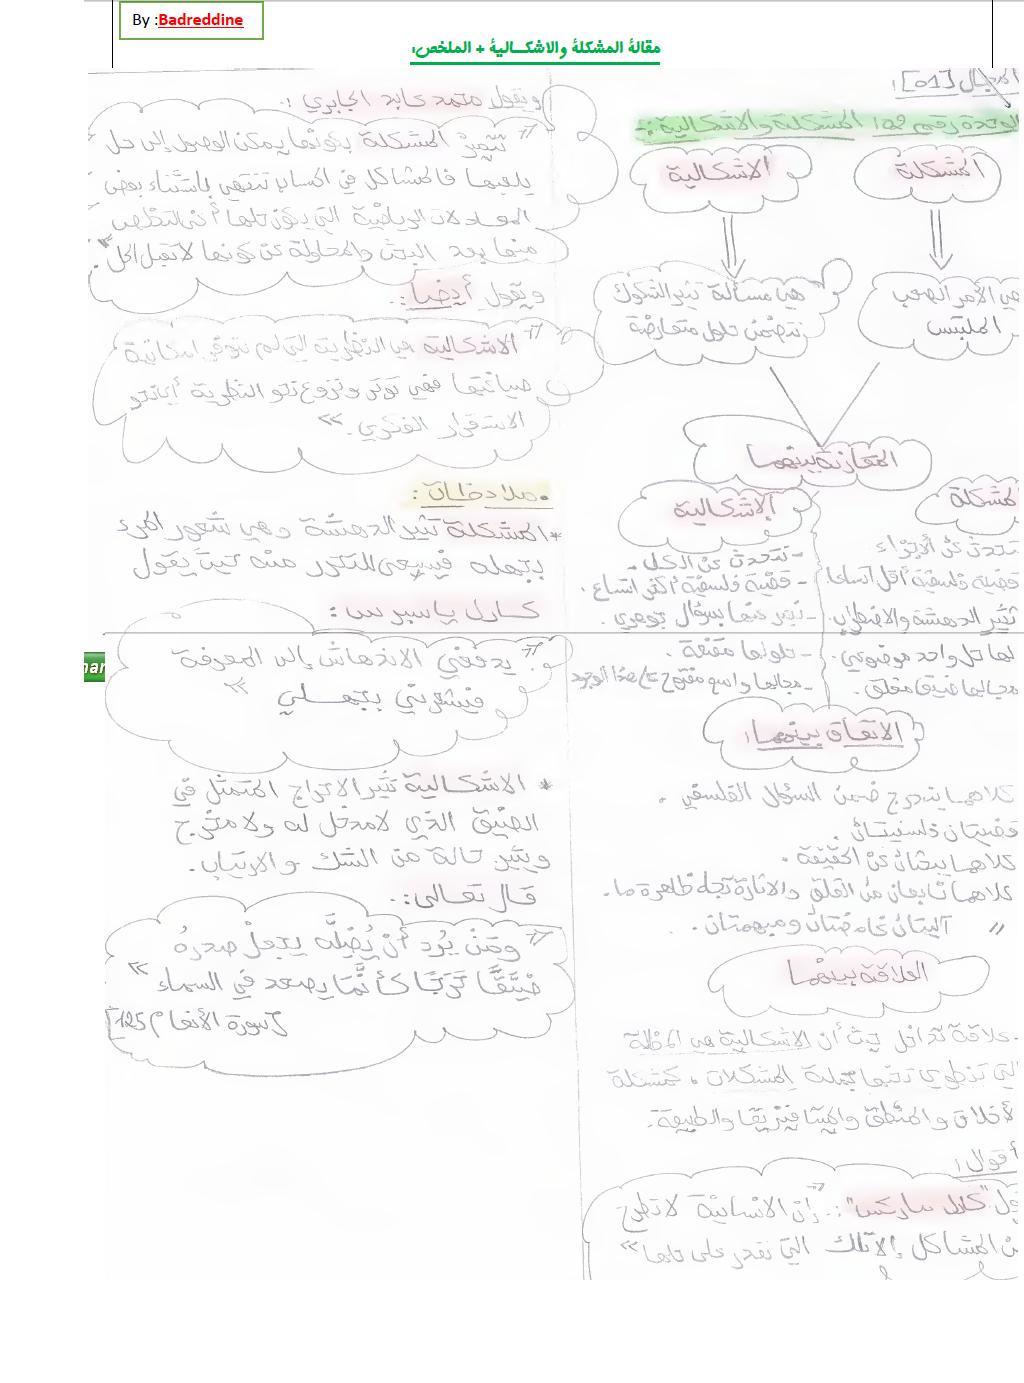 By :Badreddine
مقالة المشكلة والاشكالية + الملخص:
المجال [01]:
الوحدة رقم 02: المشكلة والاشكالية:-
المشكلة
الاشكالية
هي الأمر الصعب
الملتبس
هي مسألة تثير الشكوك
تتضمن حلول متعارضة
المقارنة بينهما
المشكلة
الإشكالية
تتحدث عن الأجزاء
قضية فلسفية أقل اتساعا.
تثير الدهشة والاضطراب.
لها حل واحد موضوعي.
مجالها ضيق مغلق.
- تتحدث عن الكل.
- قضية فلسفية أكثر اتساع.
- نعبر عنها بسؤال جوهري.
- حلولها مقنعة.
- مجالها واسع مفتوح على هذا الوجود
الاتفاق بينهما:
كلاهما يندرج ضمن السؤال الفلسفي.
قضيتان فلسفيتان.
كلاهما يبحثان عن الحقيقة.
كلاهما نابعان من القلق والاثارة تجاه ظاهرة ما.
// آليتان غامضتان ومبهمتان.
العلاقة بينهما
-علاقة تداخل حيث أن الاشكالية هي المظلة
التي تنطوي تحتها جملة المشكلات، كمشكلة
الأخلاق والمنطق والميتافيزيقا والطبيعة.
أقوال:
"كارل ماركس":. "إن الانسانية لا تطرح
من المشاكل إلا تلك التي تقدر على حلها"
ويقول محمد عابد الجابري:.
"تتميز المشكلة بكونها يمكن الوصول إلى حل
يلغيها فالمشاكل في الحساب تنتهي باستثناء بعض
المعادلات الرياضية التي يكون حلها
منها بعد البحث والمحاولة عن كونها لا تقبل الحل".
ويقول أيضا:.
"الاشكالية هي النظرية التي لم تتوفر امكانية
صياغتها فهي توتر ونزوع نحو النظرية أي نحو
الاستقرار الفكري."
•ملاحظات:
*المشكلة تثير الدهشة وهي شعور المرء
بجهله فيسعى للتحرر منه حيث يقول
كارل ياسبرس:
". يدفعني الاندهاش إلى المعرفة
فيشعرني بجهلي"
* الاشكالية تثير الاحراج المتمثل في
الضيق الذي لا مدخل له ولا مخرج
وتثير حالة من الشك والارتياب.
قال تعالى:.
"ومن يرد أن يضله يجعل صدره
ضيقا حرجا كأنما يصعد في السماء"
[سورة الأنعام 125]